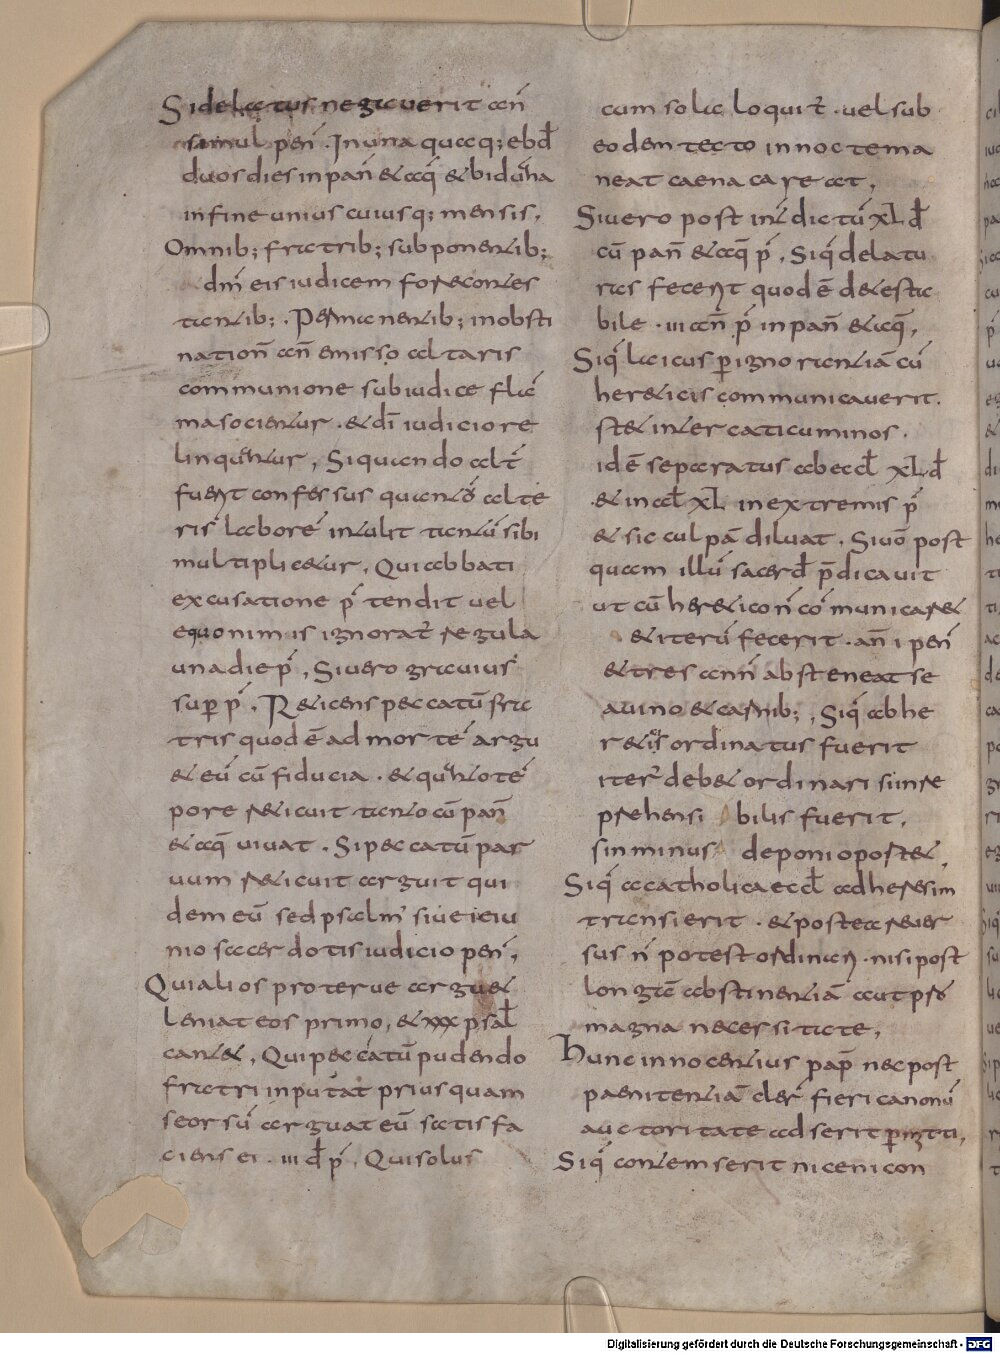 Sidelatus negauerit añ
simul peñ. In una quaq; ebđ
duos dies in pañ & aq̄ & biduana
in fine unius cuiusq; mensis,
Omnib; fratrib; subponentib;
dm̄ eis iudicem fore contes
tantib;. Permanentib; in obsti
nationē añ emisso altaris
communione sub iudice flā
ma socientur. & dī iudicio re
linquntur, Si quando alt̄
fuerit confessus quantō alte
ris laborē intulit tantū sibi
multiplicetur, Qui ab bati
excusatione p̄ tendit uel
equonimis ignorat̄ regula
una die p̄, Si uero grauius
sup̄ p̄, Reticens peccatū fra
tris quod ē ad mortē argu
& eū cū fiducia. & quanto tē
pore reticuit tanto cū pañ
& aq̄ uiuat. Si peccatū par
uum reticuit arguit qui
dem eū sed psalm̄ siue ieiu
nio sacerdotis iudicio peñ,
Qui alios proterue arguet
leniat eos primo, & xxx psal̄
cantet, Qui peccatū pudendo
fratri inputat prius quam
seorsū arguat eū satis fa
ciens ei. III đ p̄, Qui solus
cum sola loquit̄. uel sub
eodem tecto in nocte ma
neat caena careat,
Si uero post int̄dictū XL đ
cū pañ & aq̄ p̄, Siq̄ delatu
ras fecerit quod ē detesta
bile. III añ p̄ in pañ & aq̄,
Siq̄ laicus p̄ ignorantiā cū
hereticis communicauerit.
stet inter caticuminos.
id ē separatus ab eccl̄ XL đ
& in al̄ XL in extremis p̄
& sic culpā diluat, Siuō post
quam illū sacerđ p̄dicauit
ut cū heretico ñ cōmunicaret
& iterū fecerit. añ I peñ
& tres añ absteneat se
a uino & carnib;, Siq̄ ab he
reticis ordinatus fuerit
iter̄ debet ordinari si inre
prehensi bilis fuerit,
sin minus deponi oportet,
Siq̄ a catholica eccl̄ ad heresim
transierit. & postea reuer
sus ñ potest ordinari. nisi post
longā abstinentiā aut prō
magna necessitate,
Hunc innocentius pap̄ nec post
paenitentiā cler̄ fieri canonū
auctoritate adserit p̄mitti,
Siq̄ contemserit niceni con
Digitalisierung gefördert durch die Deutsche Forschungsgemeinschaft - DFG